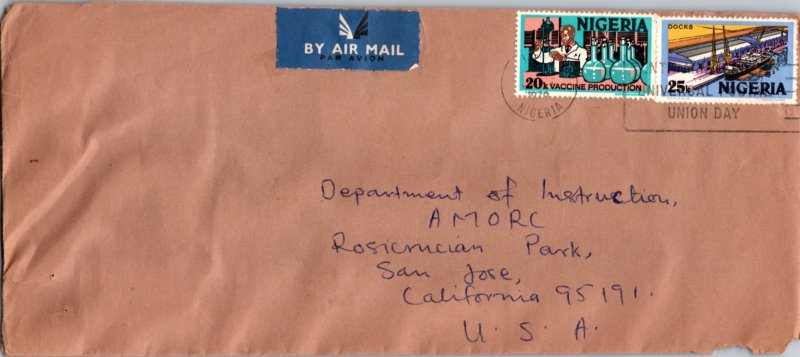 BY AIR MAIL
PAR AVION
NIGERIA
20k VACCINE PRODUCTION
DOCKS
25k NIGERIA
NIGERIA
UNIVERSAL
UNION DAY
Department of Instruction,
AMORC
Rosicrucian Park,
San Jose,
California 95191.
U. S. A.